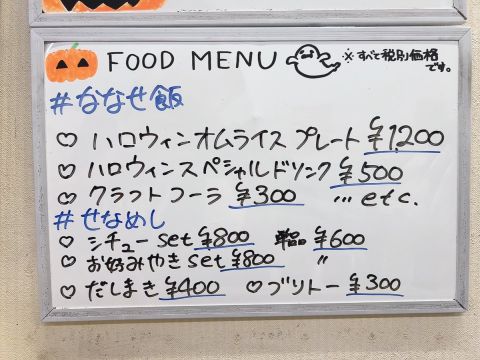 FOOD MENU
※すべて税別価格
です。
#ななせ飯
♡ハロウィンオムライスプレート ¥1,200
♡ハロウィンスペシャルドリンク ¥500
♡クラフトコーラ ¥300 ,,, etc.
#せなめし
♡シチューset ¥800 単品 ¥600
♡お好みやきset ¥800 〃
♡だしまき ¥400 ♡ブリトー ¥300